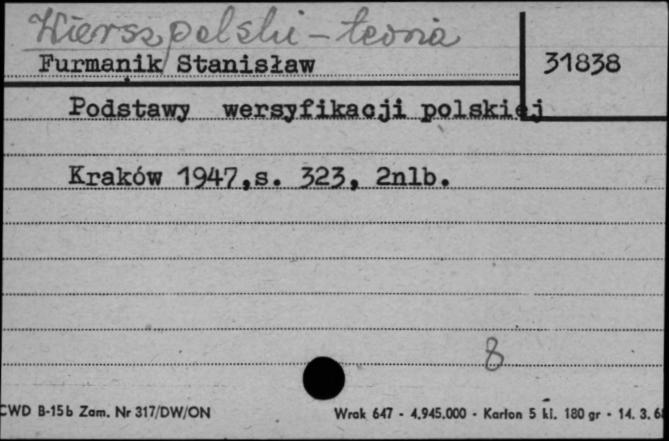 Wiersz polski – teoria
Furmanik Stanisław
31838
Podstawy wersyfikacji polskiej
Kraków 1947,s. 323, 2nlb.
8
CWD B-15b Zam. Nr 317/DW/ON
Wrak 647 - 4.945.000 - Karton 5 kl. 180 gr - 14. 3. 6